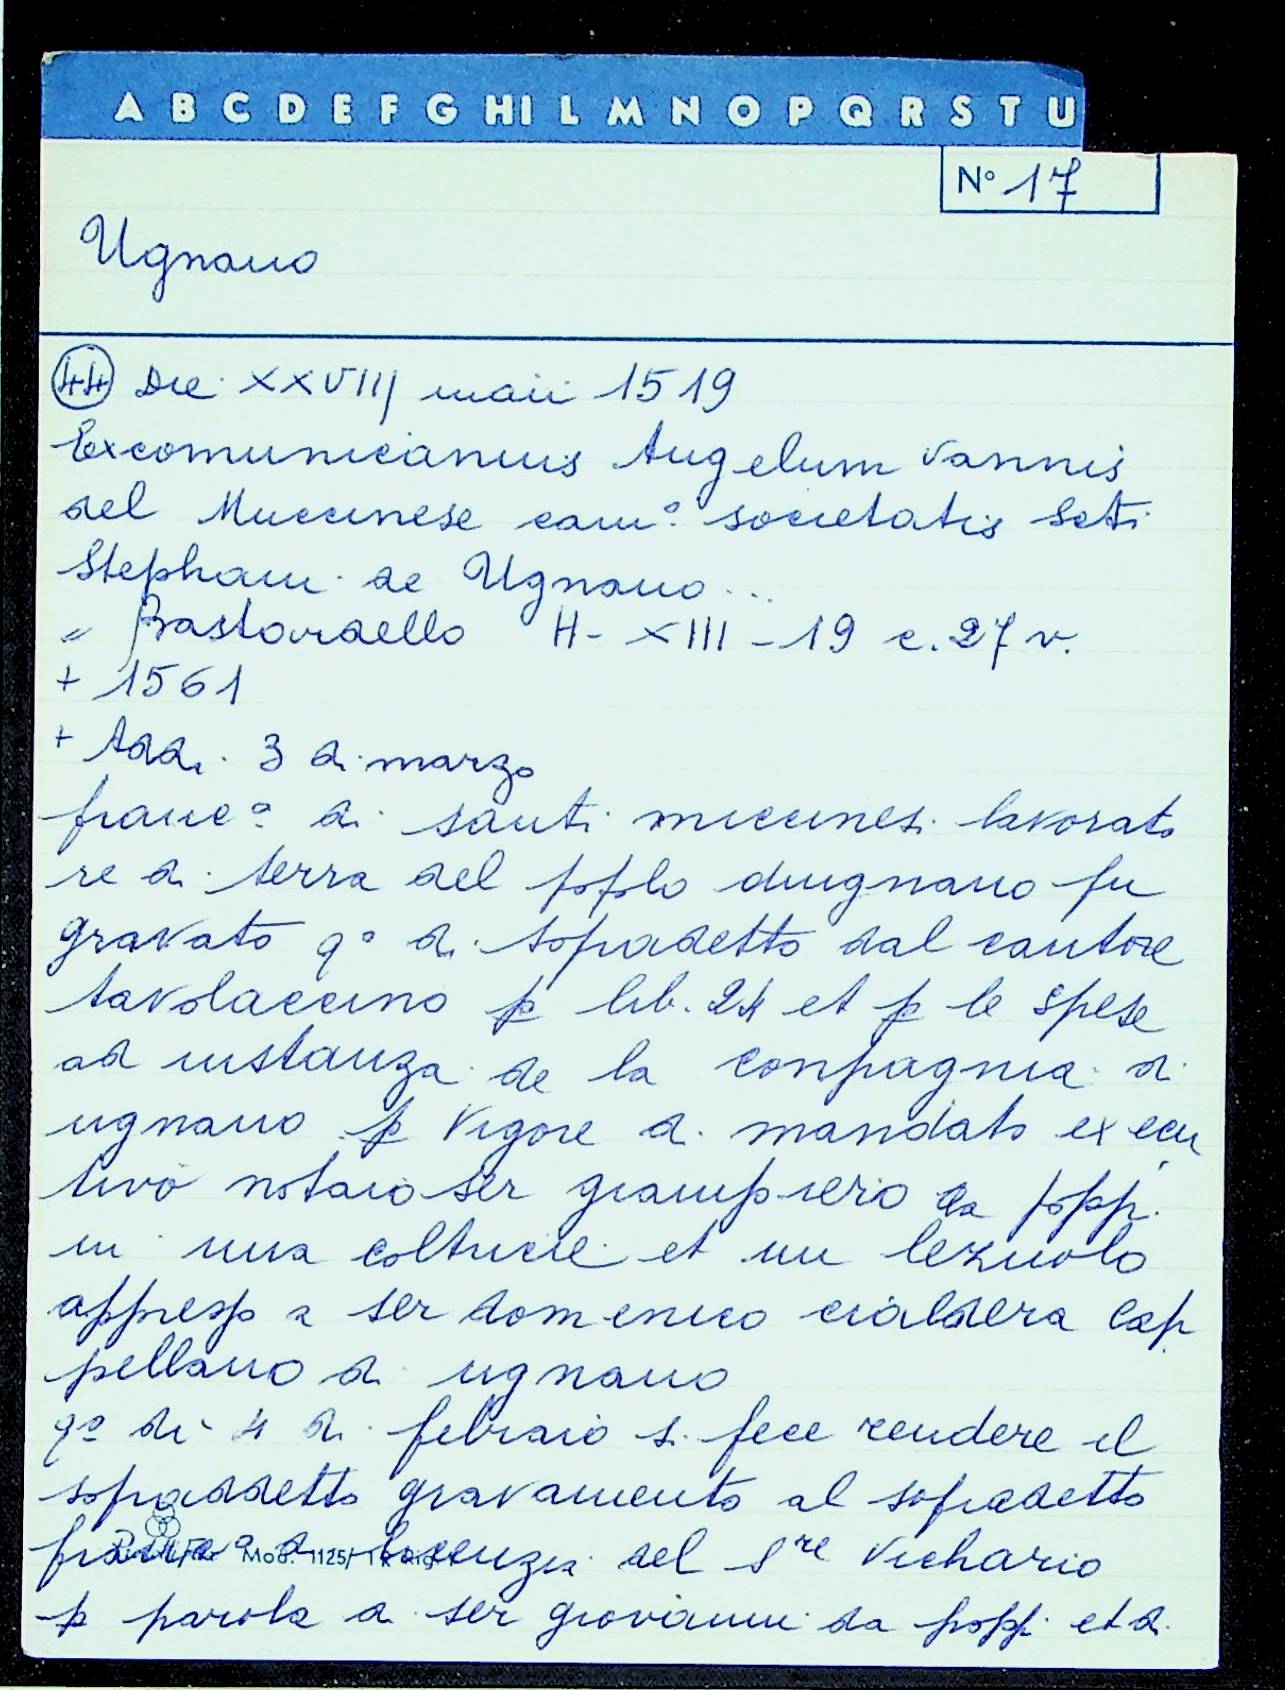 A B C D E F G HI L M N O P Q R S T U
N° 17
Ugnano
44 Die XXVIII maii 1519
Excomunicamus Angelum Vannis
del Muccinese cam° societatis Scti
Stephani de Ugnano...
" Bastardello H-XIII-19 c. 27 v.
+ 1561
+ Addi 3 di marzo
franc° di santi muccinesi lavorato
re di terra del poplo dugnano fu
gravato q° dì sopradetto dal cantore
tavolaccino p lib. 24 et p le spese
ad instanza de la conpagnia di
ugnano p vigore di mandato execu
tivo notaio ser giampiero da poppi
in una coltricie et un lezuolo
appresso a ser domenico cialdera cap
pellano di ugnano
q° dì 4 di febraio si fece rendere il
sopraddetto gravamento al sopradetto
franc° di licenzia del sre vichario
Mod. 1125/
p parola di ser giovanni da poppi et di